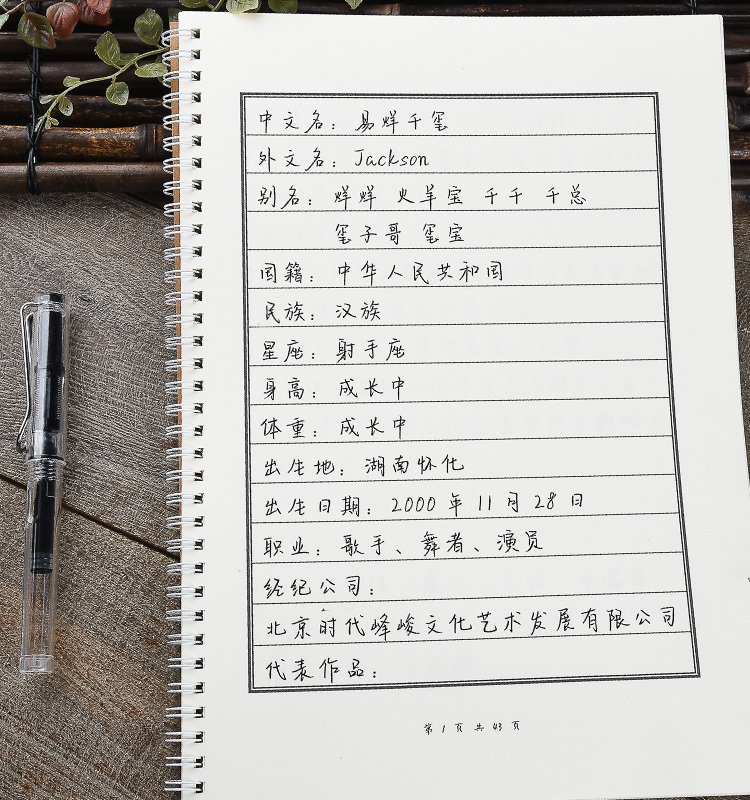 中文名：易烊千玺
外文名：Jackson
别名：烊烊 火羊宝 千千 千总
玺子哥 玺宝
国籍：中华人民共和国
民族：汉族
星座：射手座
身高：成长中
体重：成长中
出生地：湖南怀化
出生日期：2000年11月28日
职业：歌手、舞者、演员
经纪公司：
北京时代峰峻文化艺术发展有限公司
代表作品：
第1页共43页